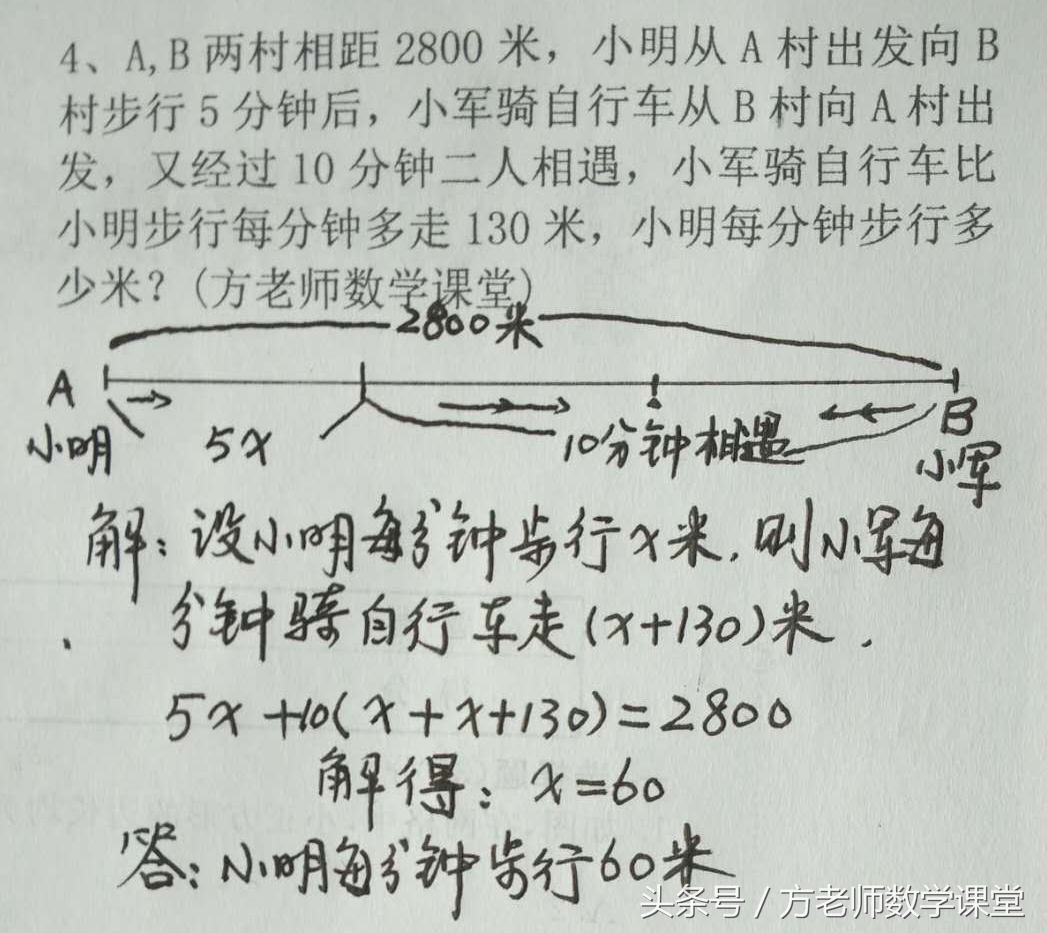 4、A,B两村相距 2800 米，小明从 A 村出发向 B
村步行 5 分钟后，小军骑自行车从 B 村向 A 村出
发，又经过 10 分钟二人相遇，小军骑自行车比
小明步行每分钟多走 130 米，小明每分钟步行多
少米？(方老师数学课堂)
2800米
A B
小明 5x 10分钟相遇 小军
解：设小明每分钟步行x米，则小军每
分钟骑自行车走(x+130)米．
5x+10(x+x+130)=2800
解得：x=60
答：小明每分钟步行60米
头条号 / 方老师数学课堂